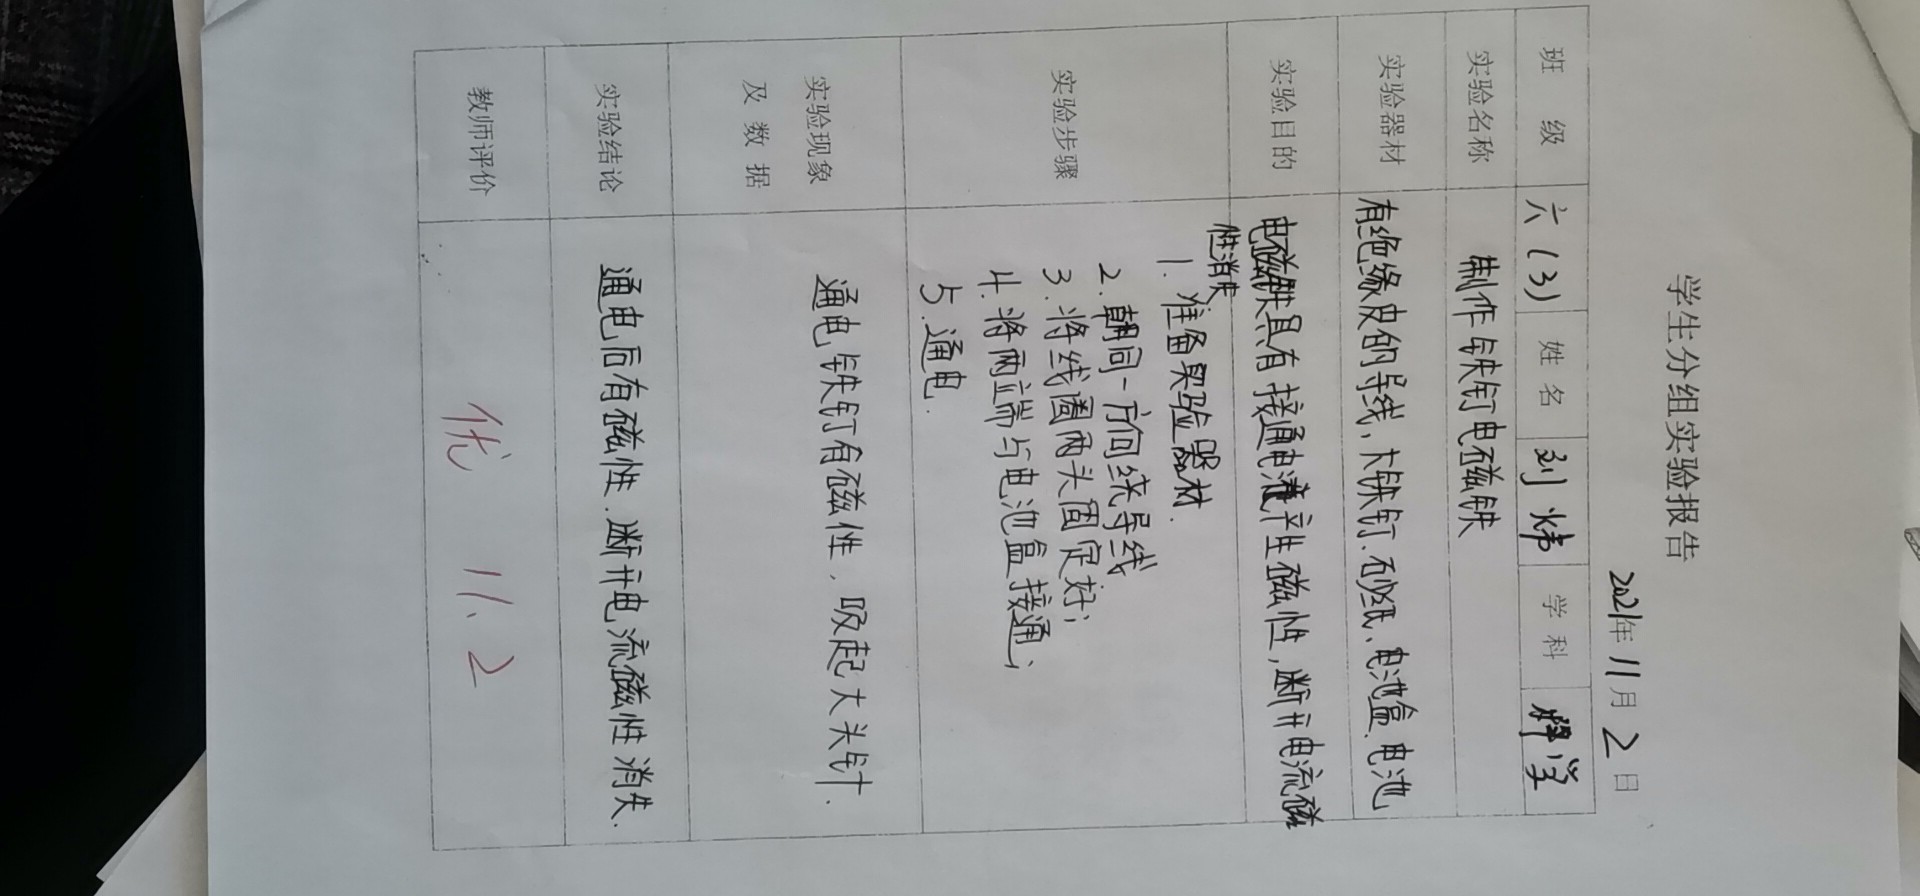 学生分组实验报告
2021年11月2日
班级 六(3) 姓名 刘炜 学科 科学
实验名称 制作铁钉电磁铁
实验器材 有绝缘皮的导线、大铁钉、砂纸、电池盒、电池
实验目的 电磁铁具有接通电流产生磁性,断开电流磁
性消失
实验步骤 1.准备实验器材.
2.朝同一方向绕导线
3.将线圈两头固定好;
4.将两端与电池盒接通;
5.通电.
实验现象
及数据 通电铁钉有磁性,吸起大头针.
实验结论 通电后有磁性.断开电流磁性消失.
教师评价 优 11.2